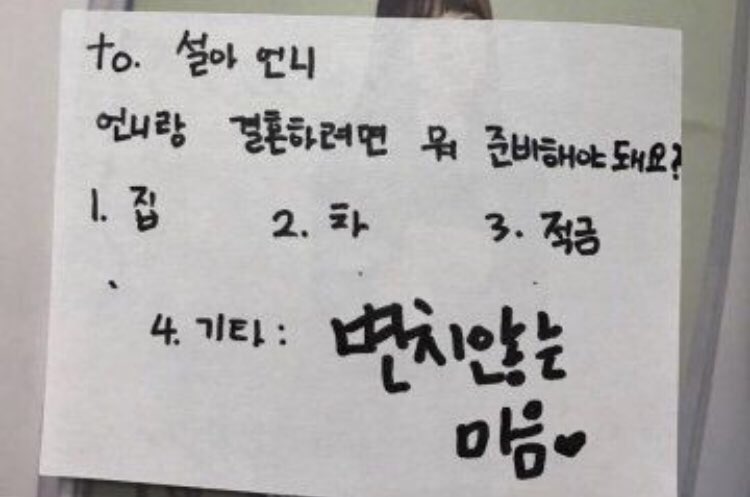 to. 설아 언니
언니랑 결혼하려면 뭐 준비해야돼요?
1. 집 2. 차 3. 적금
4. 기타 : 변치않는
마음♥